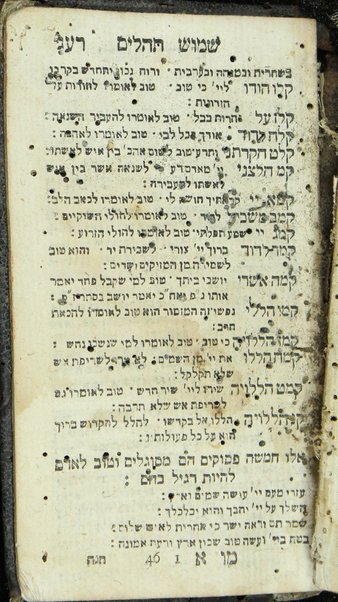 שמוש תהלים
בשחרית ובמנחה ובערבית · ורוח נכון ותחדש בקרבי
קלו הודו ליי׳ כי טוב · טוב לאומרו להודות על
הזדונות :
קלז על נהרות בבל · טוב לאומרו להעביר השנאה :
קלח לדוד אודך בכל לבי · טוב לאומרו לאהבה :
קלט חקרתני ותדע טוב לשום אהב׳ בין איש לאשתו :
קמ חלצני יי׳ מאדם רע לשנאה אשר בין איש
לאשתו לעבירה :
קמא יי׳ קראתיך חושה לי · טוב לאומרו לכאב הלב :
קמב משכיל לדוד · טוב לאומרו לחולי השוקיים :
קמג יי׳ שמע תפלתי טוב לאומרו לחולי הזרוע :
קמד לדוד ברוך יי׳ צורי לשבירת יד · והוא טוב
לשמירה מן המזיקים ושדים :
קמה אשרי יושבי ביתך · טוב למי שקבל פחד יאמר
קמו הללי נפשי טוב לאומרו להכאת
חרב :
קמז הללויה כי טוב · טוב לאומרו למי שנשכו נחש :
קמח הללו את יי׳ מן השמים לשריפת אש
שלא תקלקל :
קמט הללויה שירו ליי׳ שיר חדש · טוב לאומרו
לשריפת אש שלא תרבה :
קנ הללויה הללו אל בקדשו · להלל להקדוש ברוך
הוא על כל פעולותיו :
אלו חמשה פסוקים הם מסוגלים וטוב לאדם
להיות רגיל בהם :
עזרי מעם יי׳ עושה שמים וארץ :
השלך על יי׳ יהבך והוא יכלכלך :
שמר תם וראה ישר כי אחרית לאיש שלום :
בטח ביי׳ ועשה טוב שכון ארץ ורעה אמונה :
מו א 1 46